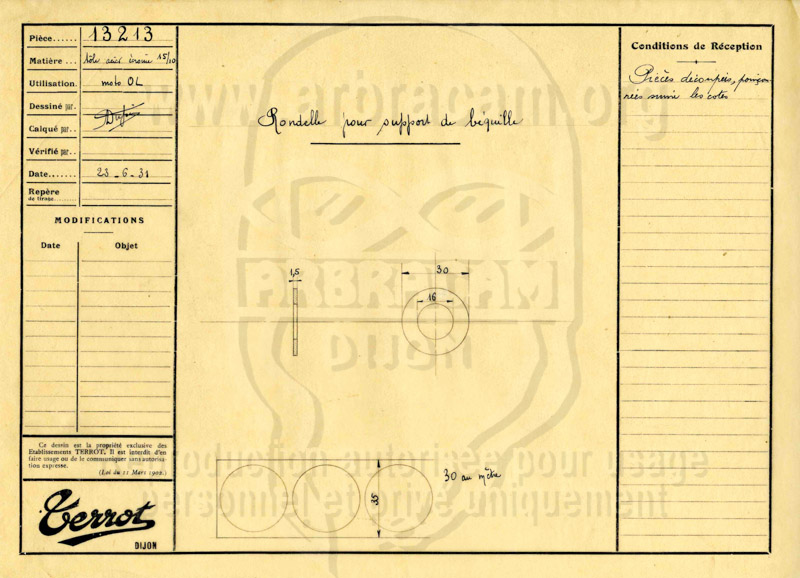 Pièce...... 13213
Matière ... tôle acier 15/10
Utilisation. moto OL
Dessiné par.
Calqué par..
Vérifié par..
Date....... 23-6-31
Repère
de tirage
MODIFICATIONS
Date Objet
Ce dessin est la propriété exclusive des
Etablissements TERROT. Il est interdit d'en
faire usage ou de le communiquer sans autorisa-
tion expresse.
(Loi du 11 Mars 1902.)
Terrot
DIJON
www.arbracam.org
Rondelle pour support de béquille
1,5
30
16
ARBRACAM
DIJON
35
30 au mètre
Reproduction autorisée pour usage
personnel et privé uniquement
Conditions de Réception
Pièces découpées, poinçon
nées suivi les cotes